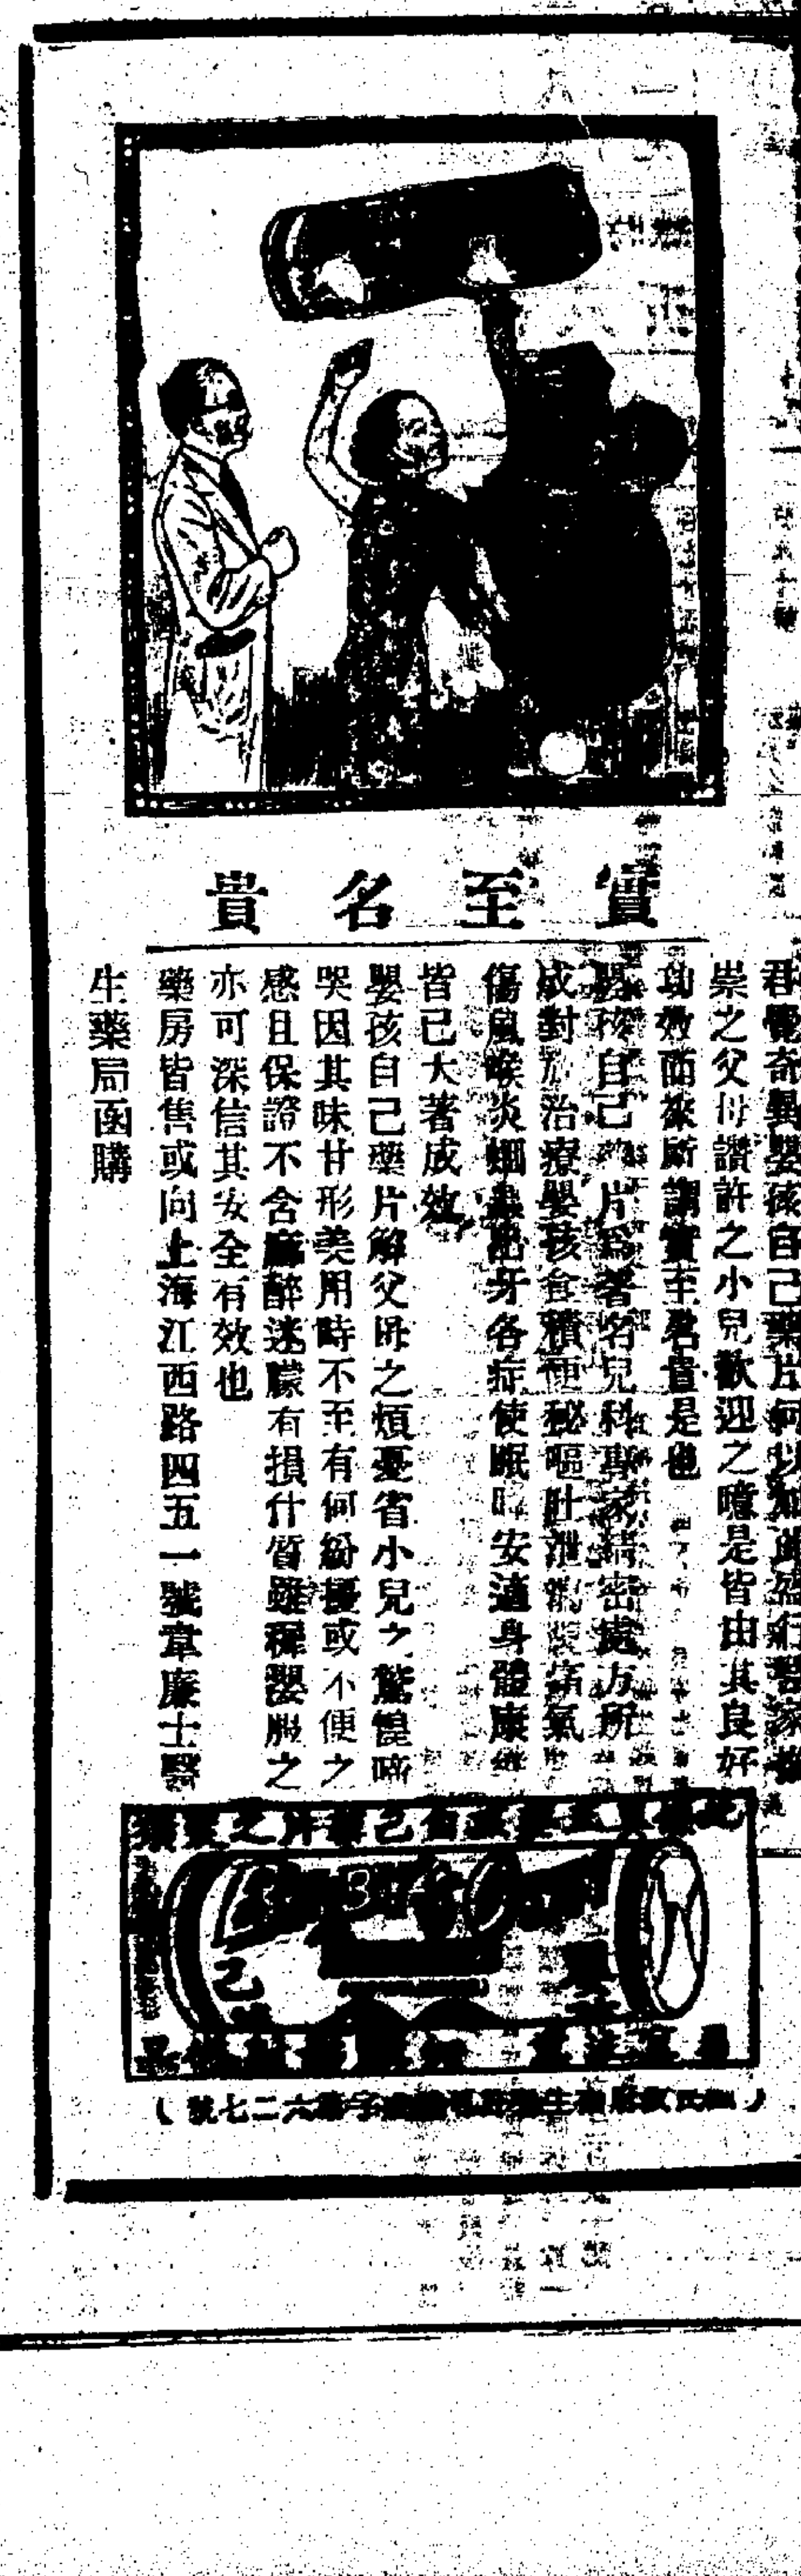 實至名貴
君覺奇異嬰孩自己藥片何以如此盛行醫家推
崇之父母讚許之小兒歡迎之噫是皆由其良好
功效而來所謂實至名貴是也
嬰孩自己藥片為著名兒科專家精密處方所
成對於治療嬰孩食積便秘嘔吐泄瀉痛氣
傷風喉炎蛔蟲出牙各症使眠時安適身體康健
皆已大著成效
嬰孩自己藥片解父母之煩憂省小兒之驚惶啼
哭因其味甘形美用時不至有何紛擾或不便之
感且保證不含麻醉迷朦有損什質雖稚嬰服之
亦可深信其安全有效也
藥房皆售或向上海江西路四五一號韋廉士醫
生藥局函購
自己藥片之
己
字第六二七號